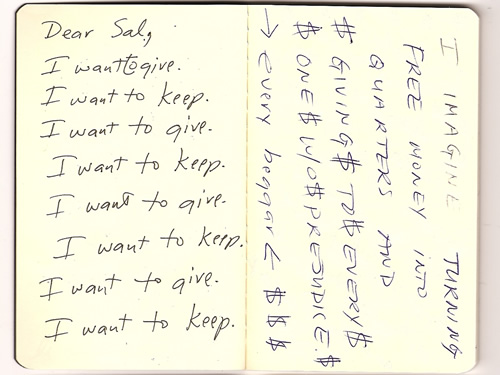 Dear Sal,
I want to give.
I want to keep.
I want to give.
I want to keep.
I want to give.
I want to keep.
I want to give.
I want to keep.
I IMAGINE TURNING
FREE MONEY INTO
QUARTERS AND
$ GIVING $ TO $ EVERY $
$ ONE $ W/O $ PREJUDICE. $
→ every beggar ← $ $ $